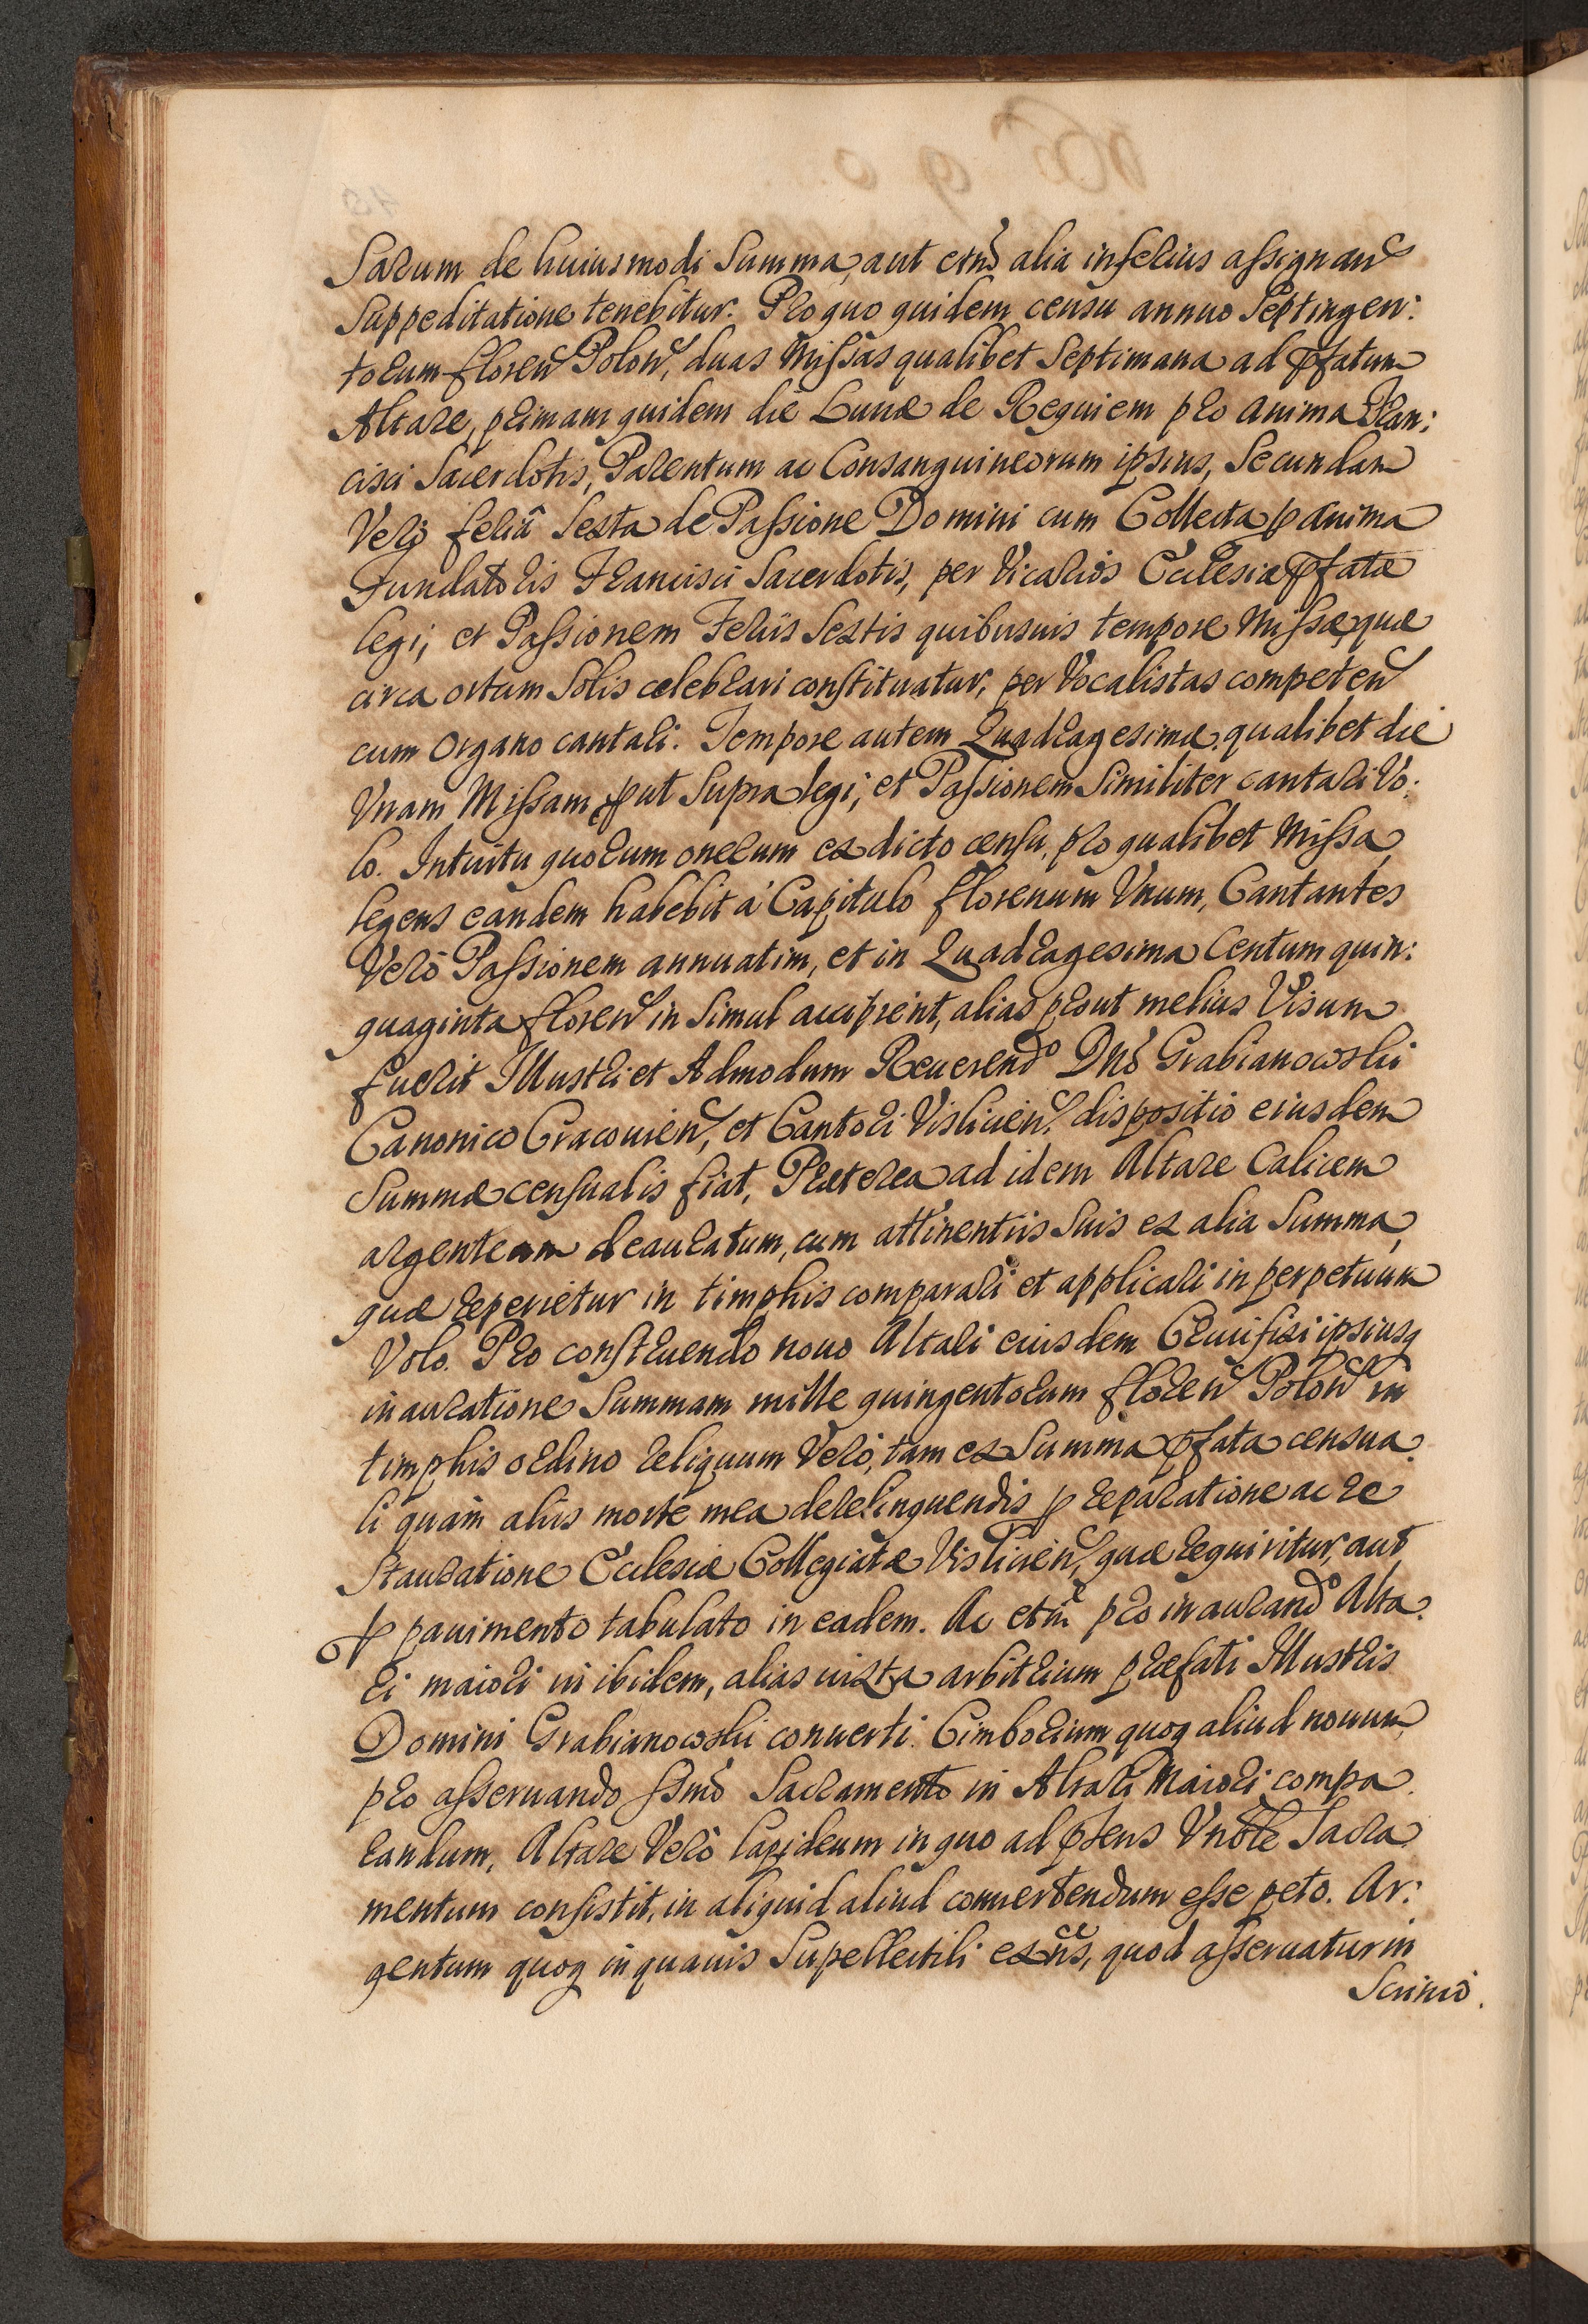 Sarum de huiusmodi Summa, aut etnō alia inferius assignan̄
Suppeditatione tenebitur. Pro quo quidem censu annuo Septingen:
torum floren̄ Polon̄, duas Missas qualibet Septimana ad p̄fatum
Altare, primam quidem die Lunæ de Requiem pro anima Fran:
cisci Sacerdotis, Parentum ac Consanguineorum ipsius, Secundam
Verò feriâ Sexta de Passione Domini cum Collecta p anima
Fundatoris Francisci Sacerdotis, per Vicarios Ecclesiæ p̄fatæ
legi, et Passionem Feriis Sextis quibusuis tempore Missæ, quæ
circa ortum Solis celebrari constituatur, per Vocalistas competen̄
cum Organo cantari. Tempore autem Quadragesimæ, qualibet die
Vnam Missam, put Supra legi, et Passionem Similiter cantari Vo:
lo. Intuitu quorum onerum ex dicto censu, pro qualibet Missa,
legens eandem habebit à Capitulo florenum Vnum, Cantantes
Verò Passionem annuatim, et in Quadragesima Centum quin:
quaginta floren̄ in Simul accipient, alias prout melius Visum
fuerit Illustri et Admodum Reuerendo Dnō Grabianowski
Canonico Cracouien̄, et Cantori Vislicien̄, dispositio eiusdem
Summæ censualis fiat, Præterea ad idem Altare Calicem
argenteum deauratum, cum attinentiis Suis ex alia Summa,
quæ reperietur in timphis comparari et applicari in perpetuum
Volo. Pro construendo nouo Altari eiusdem Crucifixi ipsiusq
inauratione Summam mille quingentorum floren̄ Polon̄ in
timphis ordino reliquum Verò, tam ex Summa p̄fata censua:
li quàm aliis morte mea derelinquendis p reparatione ac re
Stauratione Ecclesiæ Collegiatæ Vislicien̄, quæ requiritur, aut
p pauimento tabulato in eadem. Ac etm̄ pro inaurando Alta:
ri maiori in ibidem, alias iuxta arbitrium præfati Illustris
Domini Grabianowski conuerti. Cimborium quoq aliud nouum,
pro asseruando ssmō Sacramento in Altari Maiori compa
randum, Altare Verò lapideum in quo ad p̄sens Vnble Sacra
mentum consistit, in aliquid aliud conuertendum esse peto. Ar:
gentum quoq in quauis Supellectili exn̄s, quod asseruatur in
Scrinio.